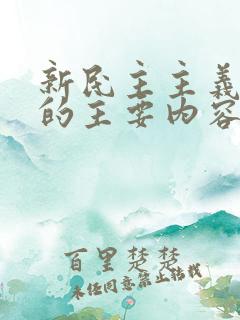 新民主主义
的主要内容
百里楚楚
未经同意禁止转载